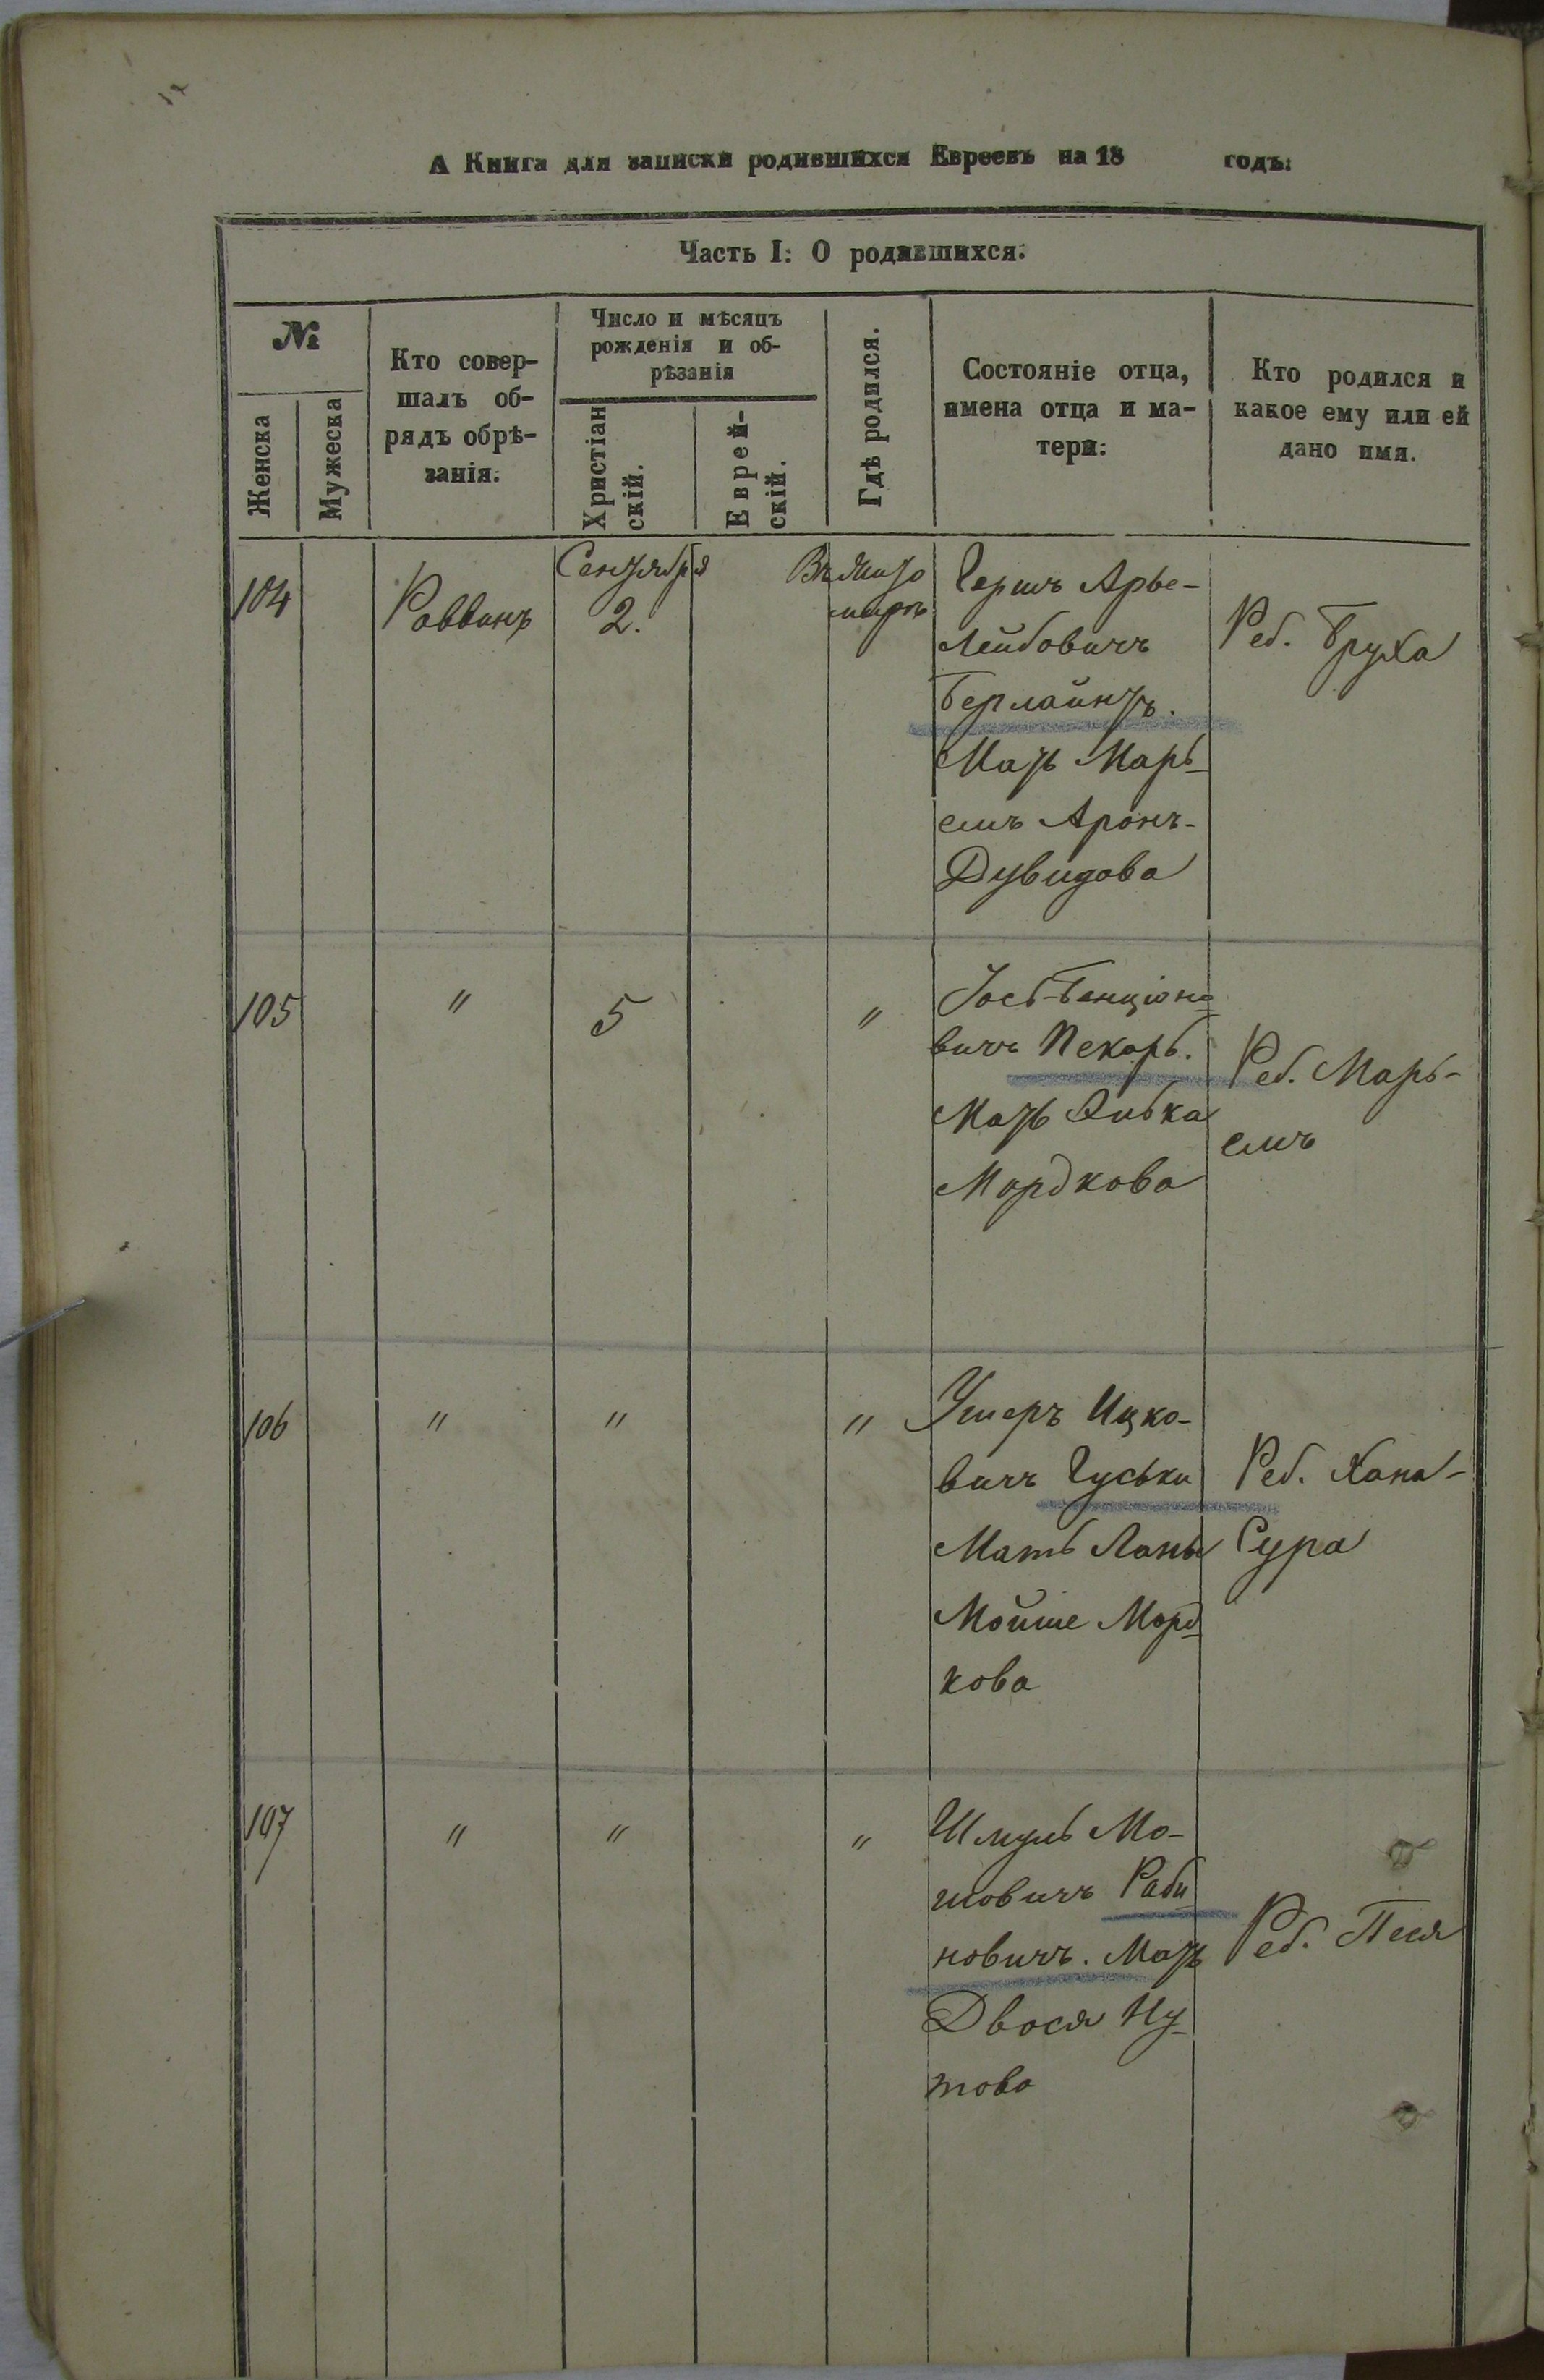 А Книга для записки родившихся Евреевъ на 18 годъ:
Часть I: О родившихся.
№
Женска
Мужеска
Кто совер-
шалъ об-
рядъ обрѣ-
занія:
Число и мѣсяцъ
рожденія и об-
рѣзанія
Христіан
скій.
Еврей-
скій.
Гдѣ родился.
Состояніе отца,
имена отца и ма-
тери:
Кто родился и
какое ему или ей
дано имя.
104
Раввинъ
Сентября
2.
Въ Жито
мирѣ
Гершъ Арье-
Лейбовичъ
Берлайнтъ.
Мать Марь-
емъ Аронъ-
Дувидова
Реб. Бруха
105
"
5
"
Іось-Бенціоно-
вичъ Пекарь.
Мать
Мордкова
Реб. Марь-
емъ
106
"
"
"
Ушеръ Ицко-
вичъ Гуськи
Мать
Мойше Морд-
кова
Реб. Хана-
Сура
107
"
"
"
Шмуль Мо-
шовичъ Раби
новичъ. Мать
Двося Ну-
това
Реб. Песя